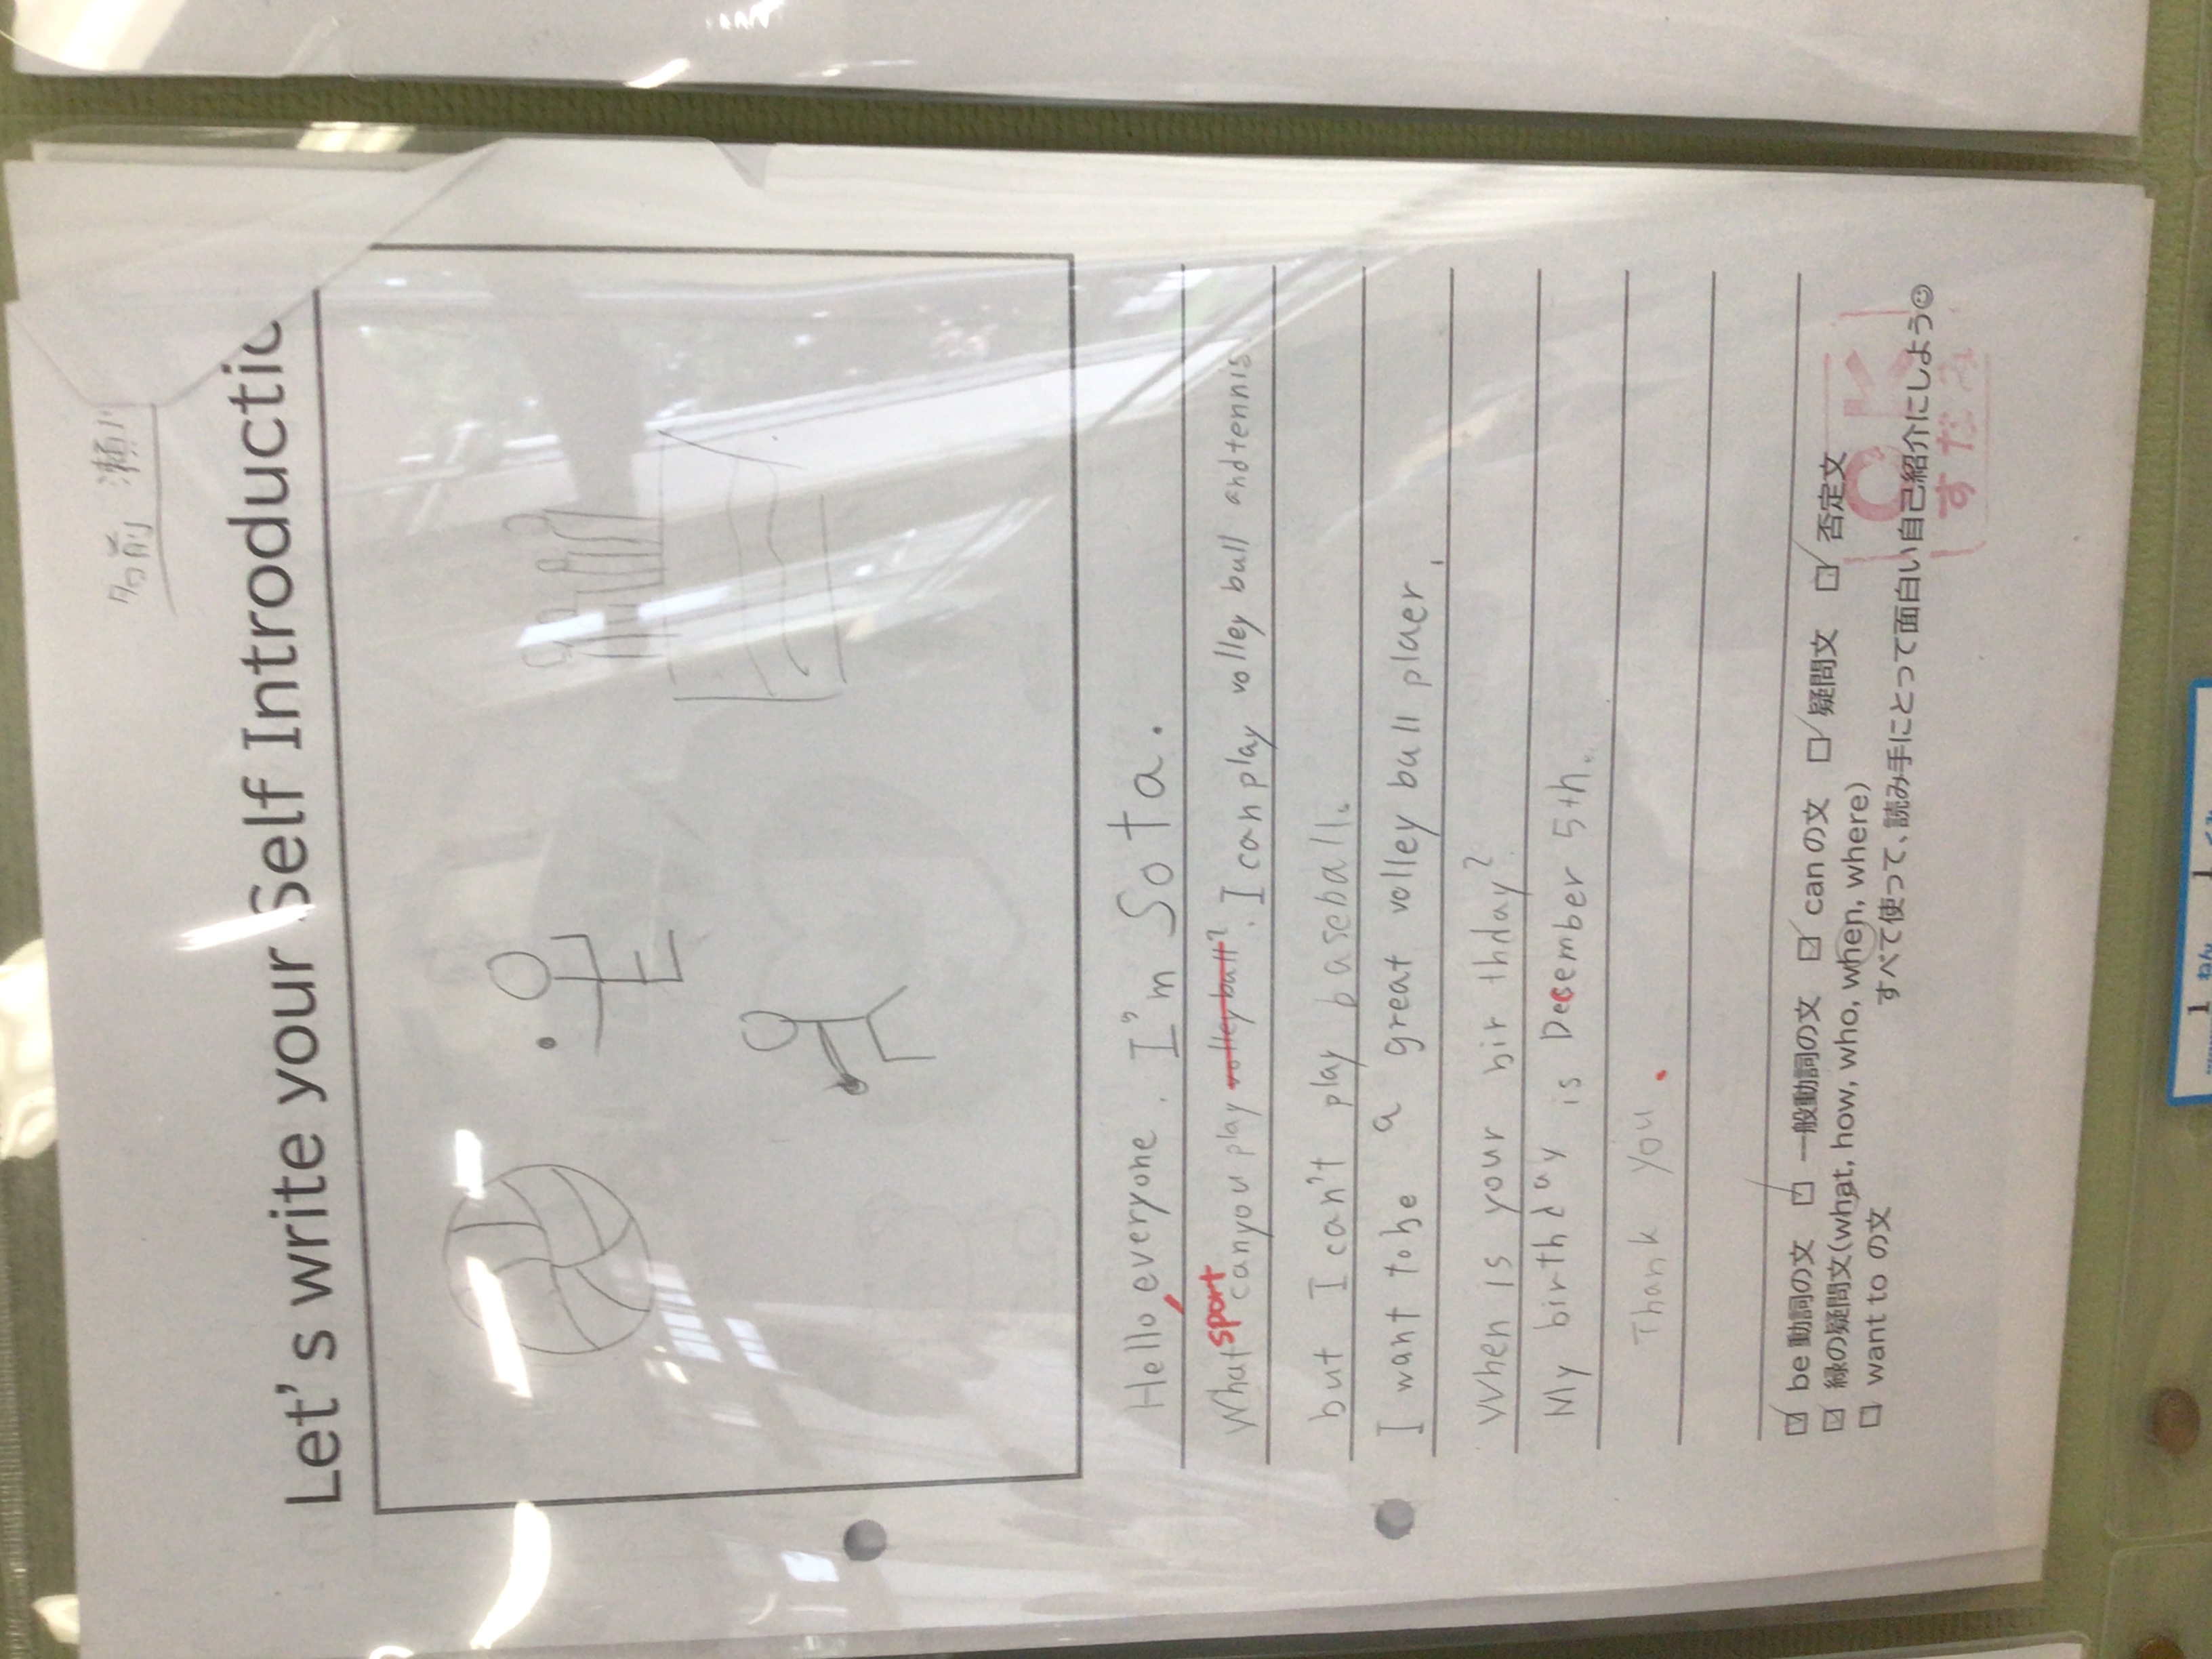 名前 瀬川
Let's write your Self Introductio
Hello, everyone. I'm Sota.
What sport can you play volley ball? I can play volley ball and tennis
but I can't play baseball.
I want to be a great volley ball plaer.
When is your birthday?
My birthday is December 5th.
Thank you.
☑ be動詞の文 ☑ 一般動詞の文 ☑ canの文 ☑ 疑問文 ☑ 否定文
☑ 緑の疑問文(what, how, who, when, where)
☐ want to の文
すべて使って、読み手にとって面白い自己紹介にしよう☺
OK
すだみ